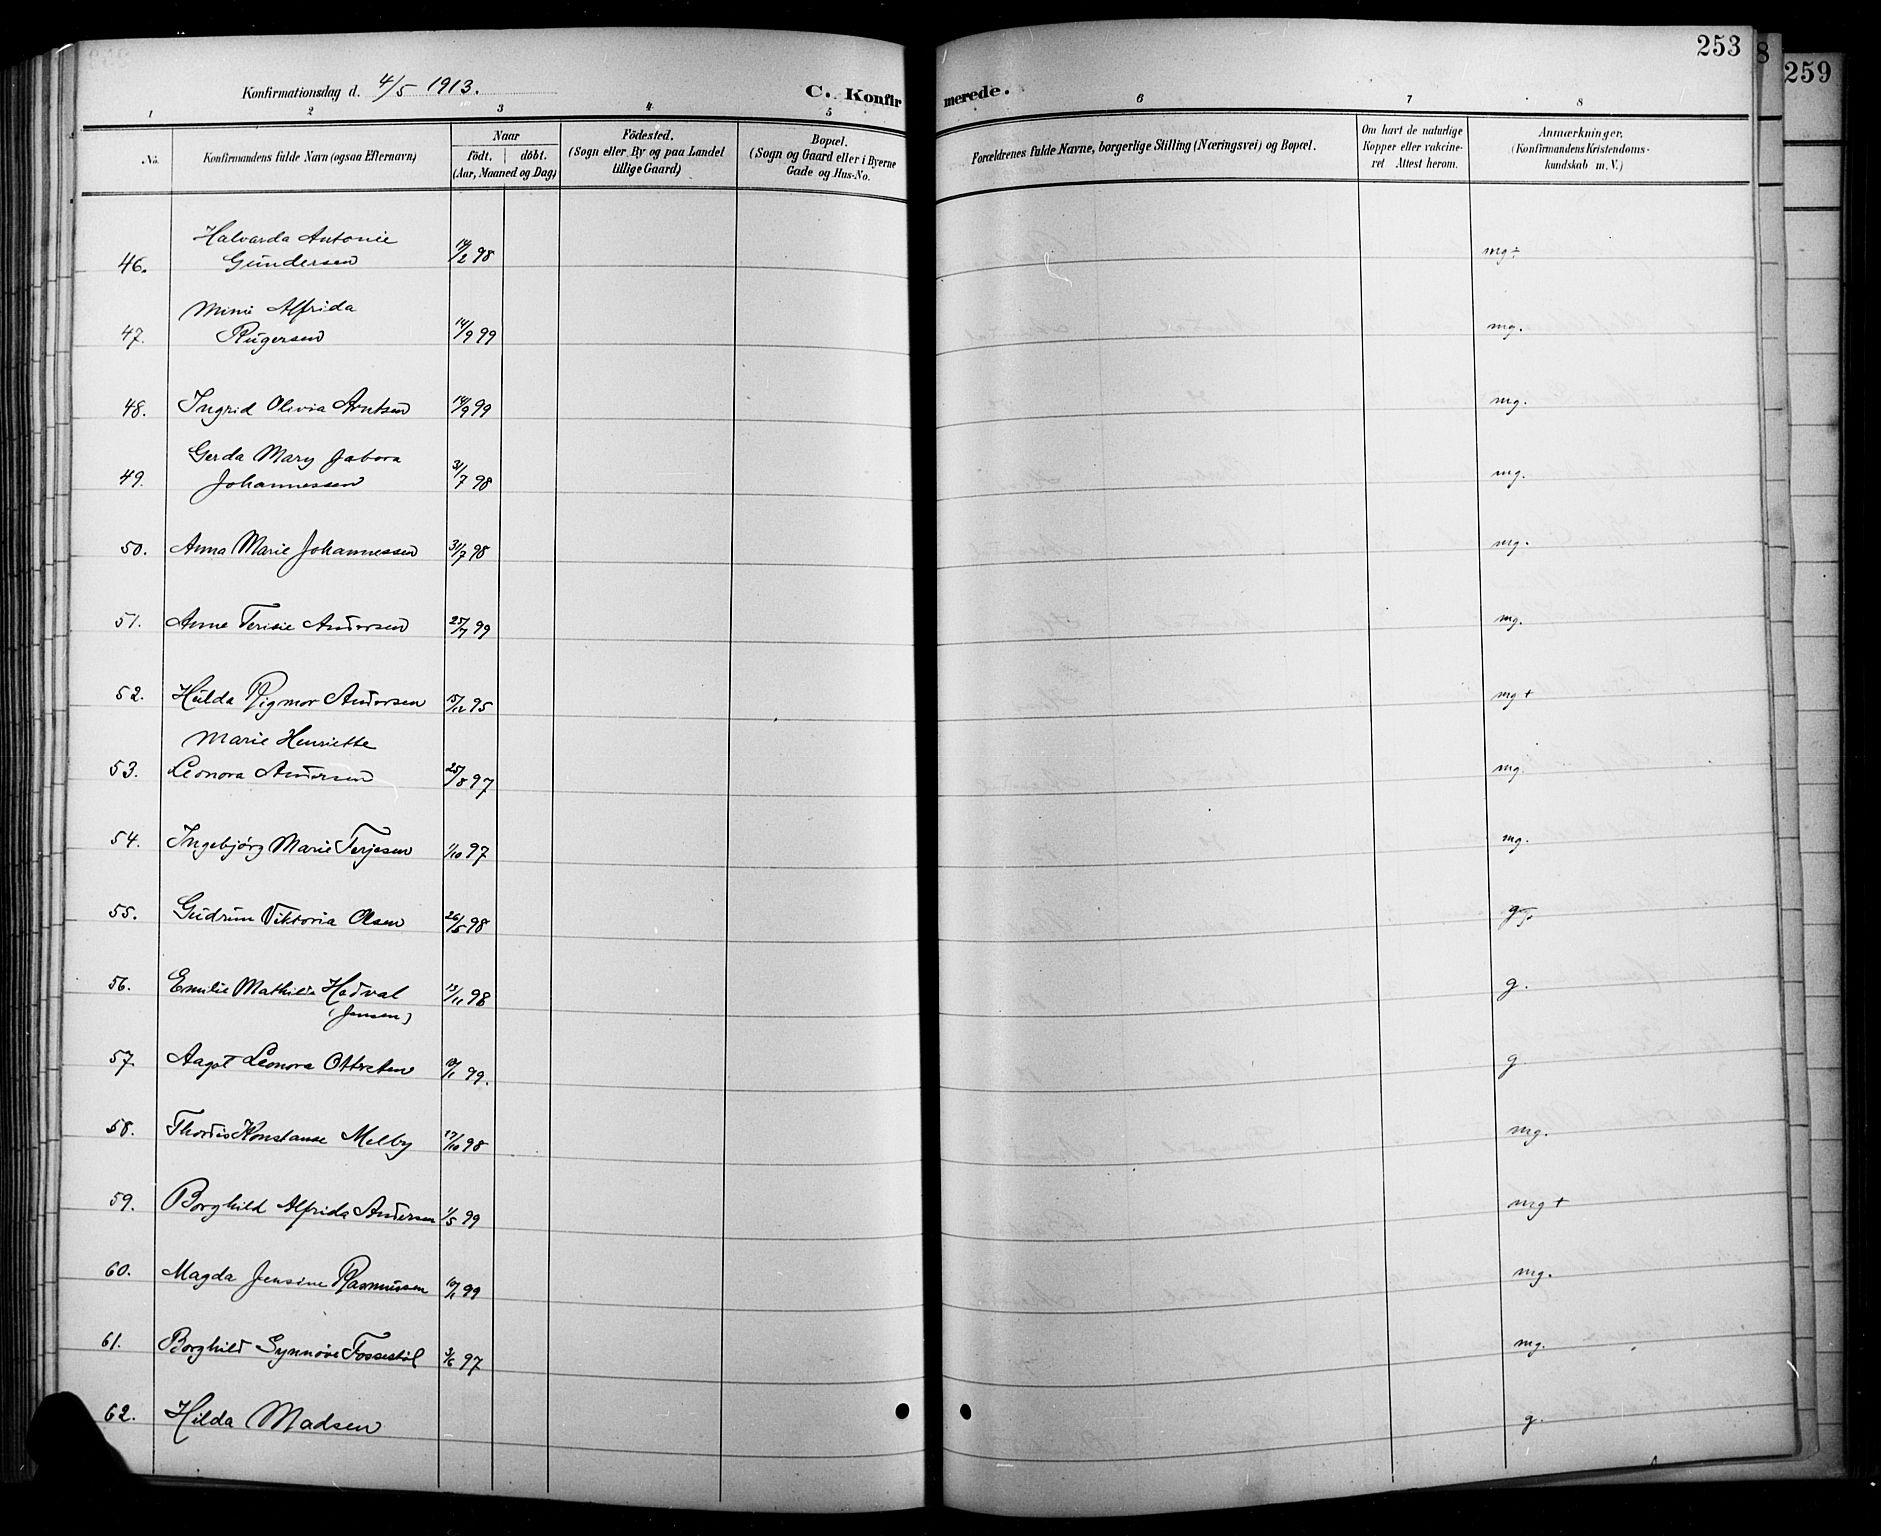 253
8
259
Konfirmationsdag d. 4/5 1913.
C. Konfirmerede.
1 2 3 4 5 6 7 8
No.
Konfirmandens fulde Navn (ogsaa Efternavn)
Naar
födt. döbt.
(Aar, Maaned og Dag)
Födested.
(Sogn eller By og paa Landet
tillige Gaard)
Bopæl.
(Sogn og Gaard eller i Byerne
Gade og Hus-No.
Forældrenes fulde Navne, borgerlige Stilling (Næringsvei) og Bopæl.
Om havt de naturlige
Kopper eller vakcine-
ret Attest herom.
Anmærkninger,
(Konfirmandens Kristendoms-
kundskab m. V.)
Halvarda Antonie
46. Gundersen 14/2 98 mg÷
Mimi Alfrida
47. Rugersen 14/9 99 mg.
48. Ingrid Olivia Arntsen 14/9 99 mg.
Gerda Mary
49. Johannessen 31/7 98 mg.
50. Anna Marie Johannessen 31/7 98 mg.
51. Anne Terisie Andersen 25/7 99 mg.
52. Hulda Rigmor Andersen 15/12 95 mg+
Marie Henriette
53. Leonora Andersen 25/8 97 mg.
54. Ingebjörg Marie Terjesen 1/10 97 mg.
55. Gudrun Viktoria Olsen 26/5 98 g
56. Emilie Mathilde Hedval 13/11 98 g.
(Jensen)
57. Aagot Leonora 10/1 99. g.
58. Thordis Konstanse Melby 17/10 98 mg.
59. Borghild Alfrida Andersen 1/5 99 mg+
60. Magda Jensine Rasmussen 10/1 99 mg.
61. Borghild Synnöve Fossestöl 3/6 97 mg.
62. Hilda Madsen g.